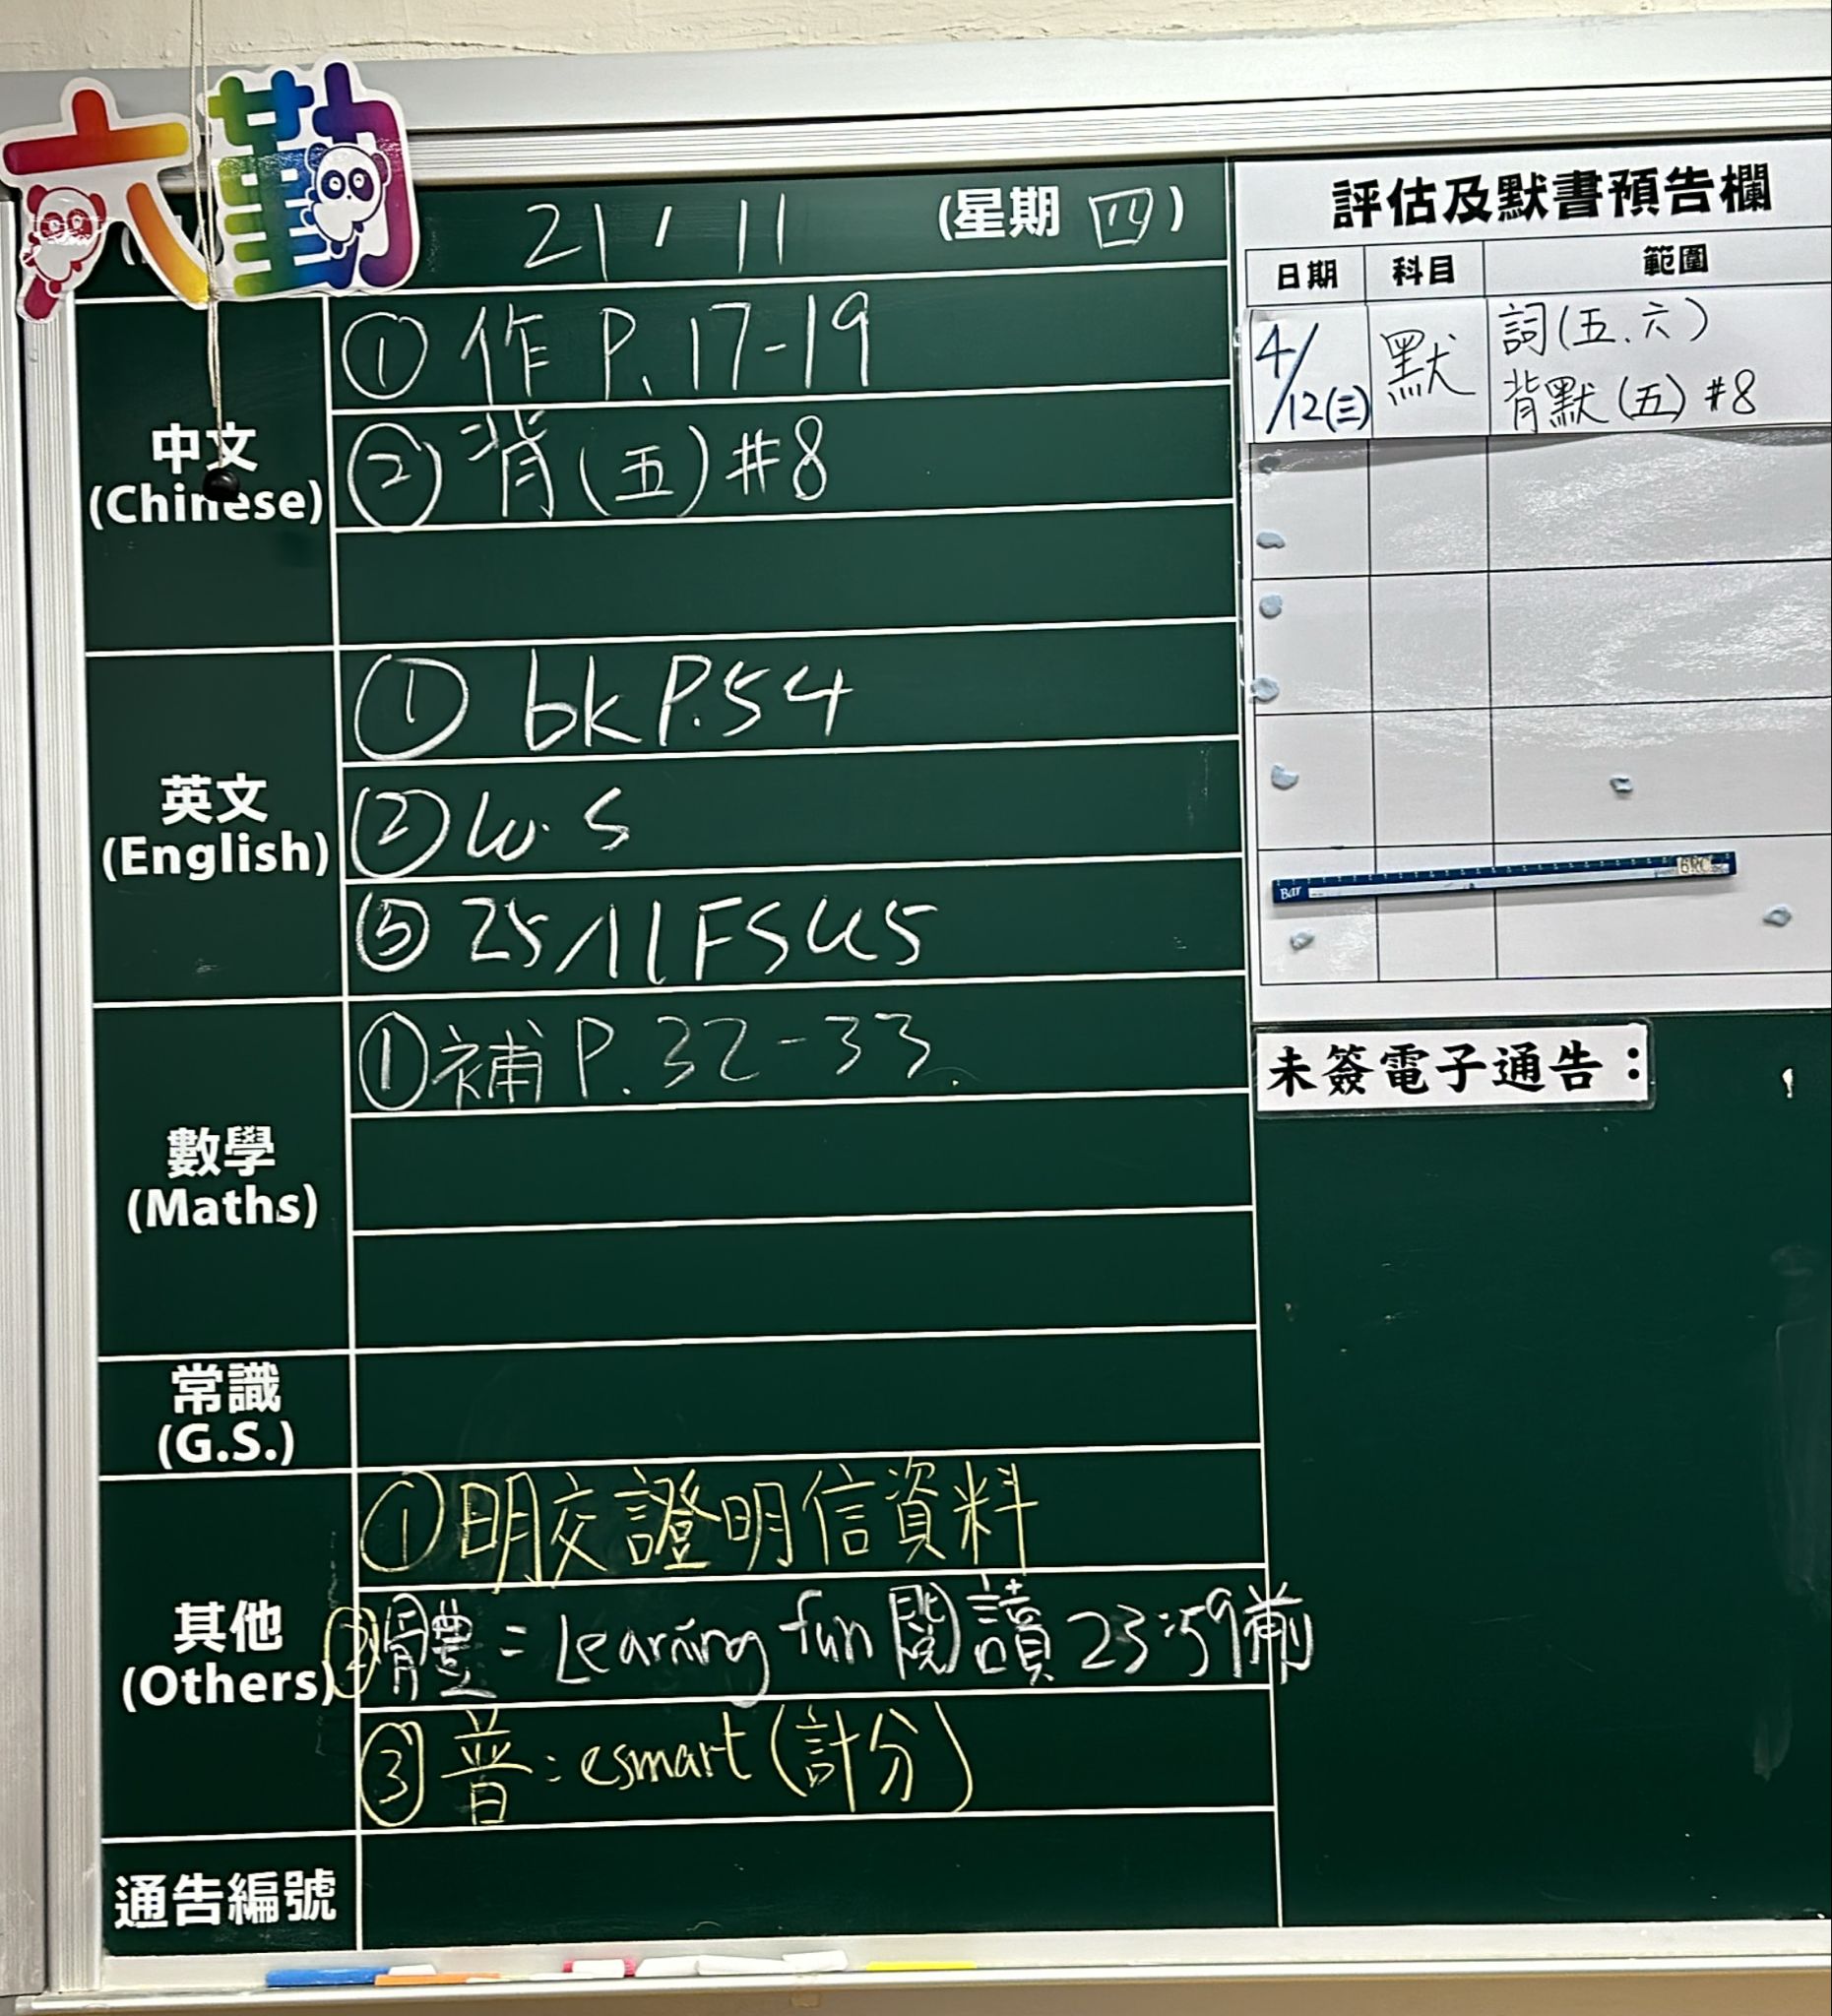 六勤
21 / 11 (星期 四)
中文
(Chinese)
① 作 P. 17-19
② 背 (五) #8
英文
(English)
① bk P.54
② W.S
⑤ 25/11 FS U5
數學
(Maths)
① 補 P. 32-33.
常識
(G.S.)
其他
(Others)
① 明交證明信資料
② 體 = Learning fun 閱讀 23:59前
③ 普 : esmart (計分)
通告編號
評估及默書預告欄
日期 科目 範圍
4/12(三) 默 詞(五、六)
背默(五) #8
Bar
未簽電子通告：